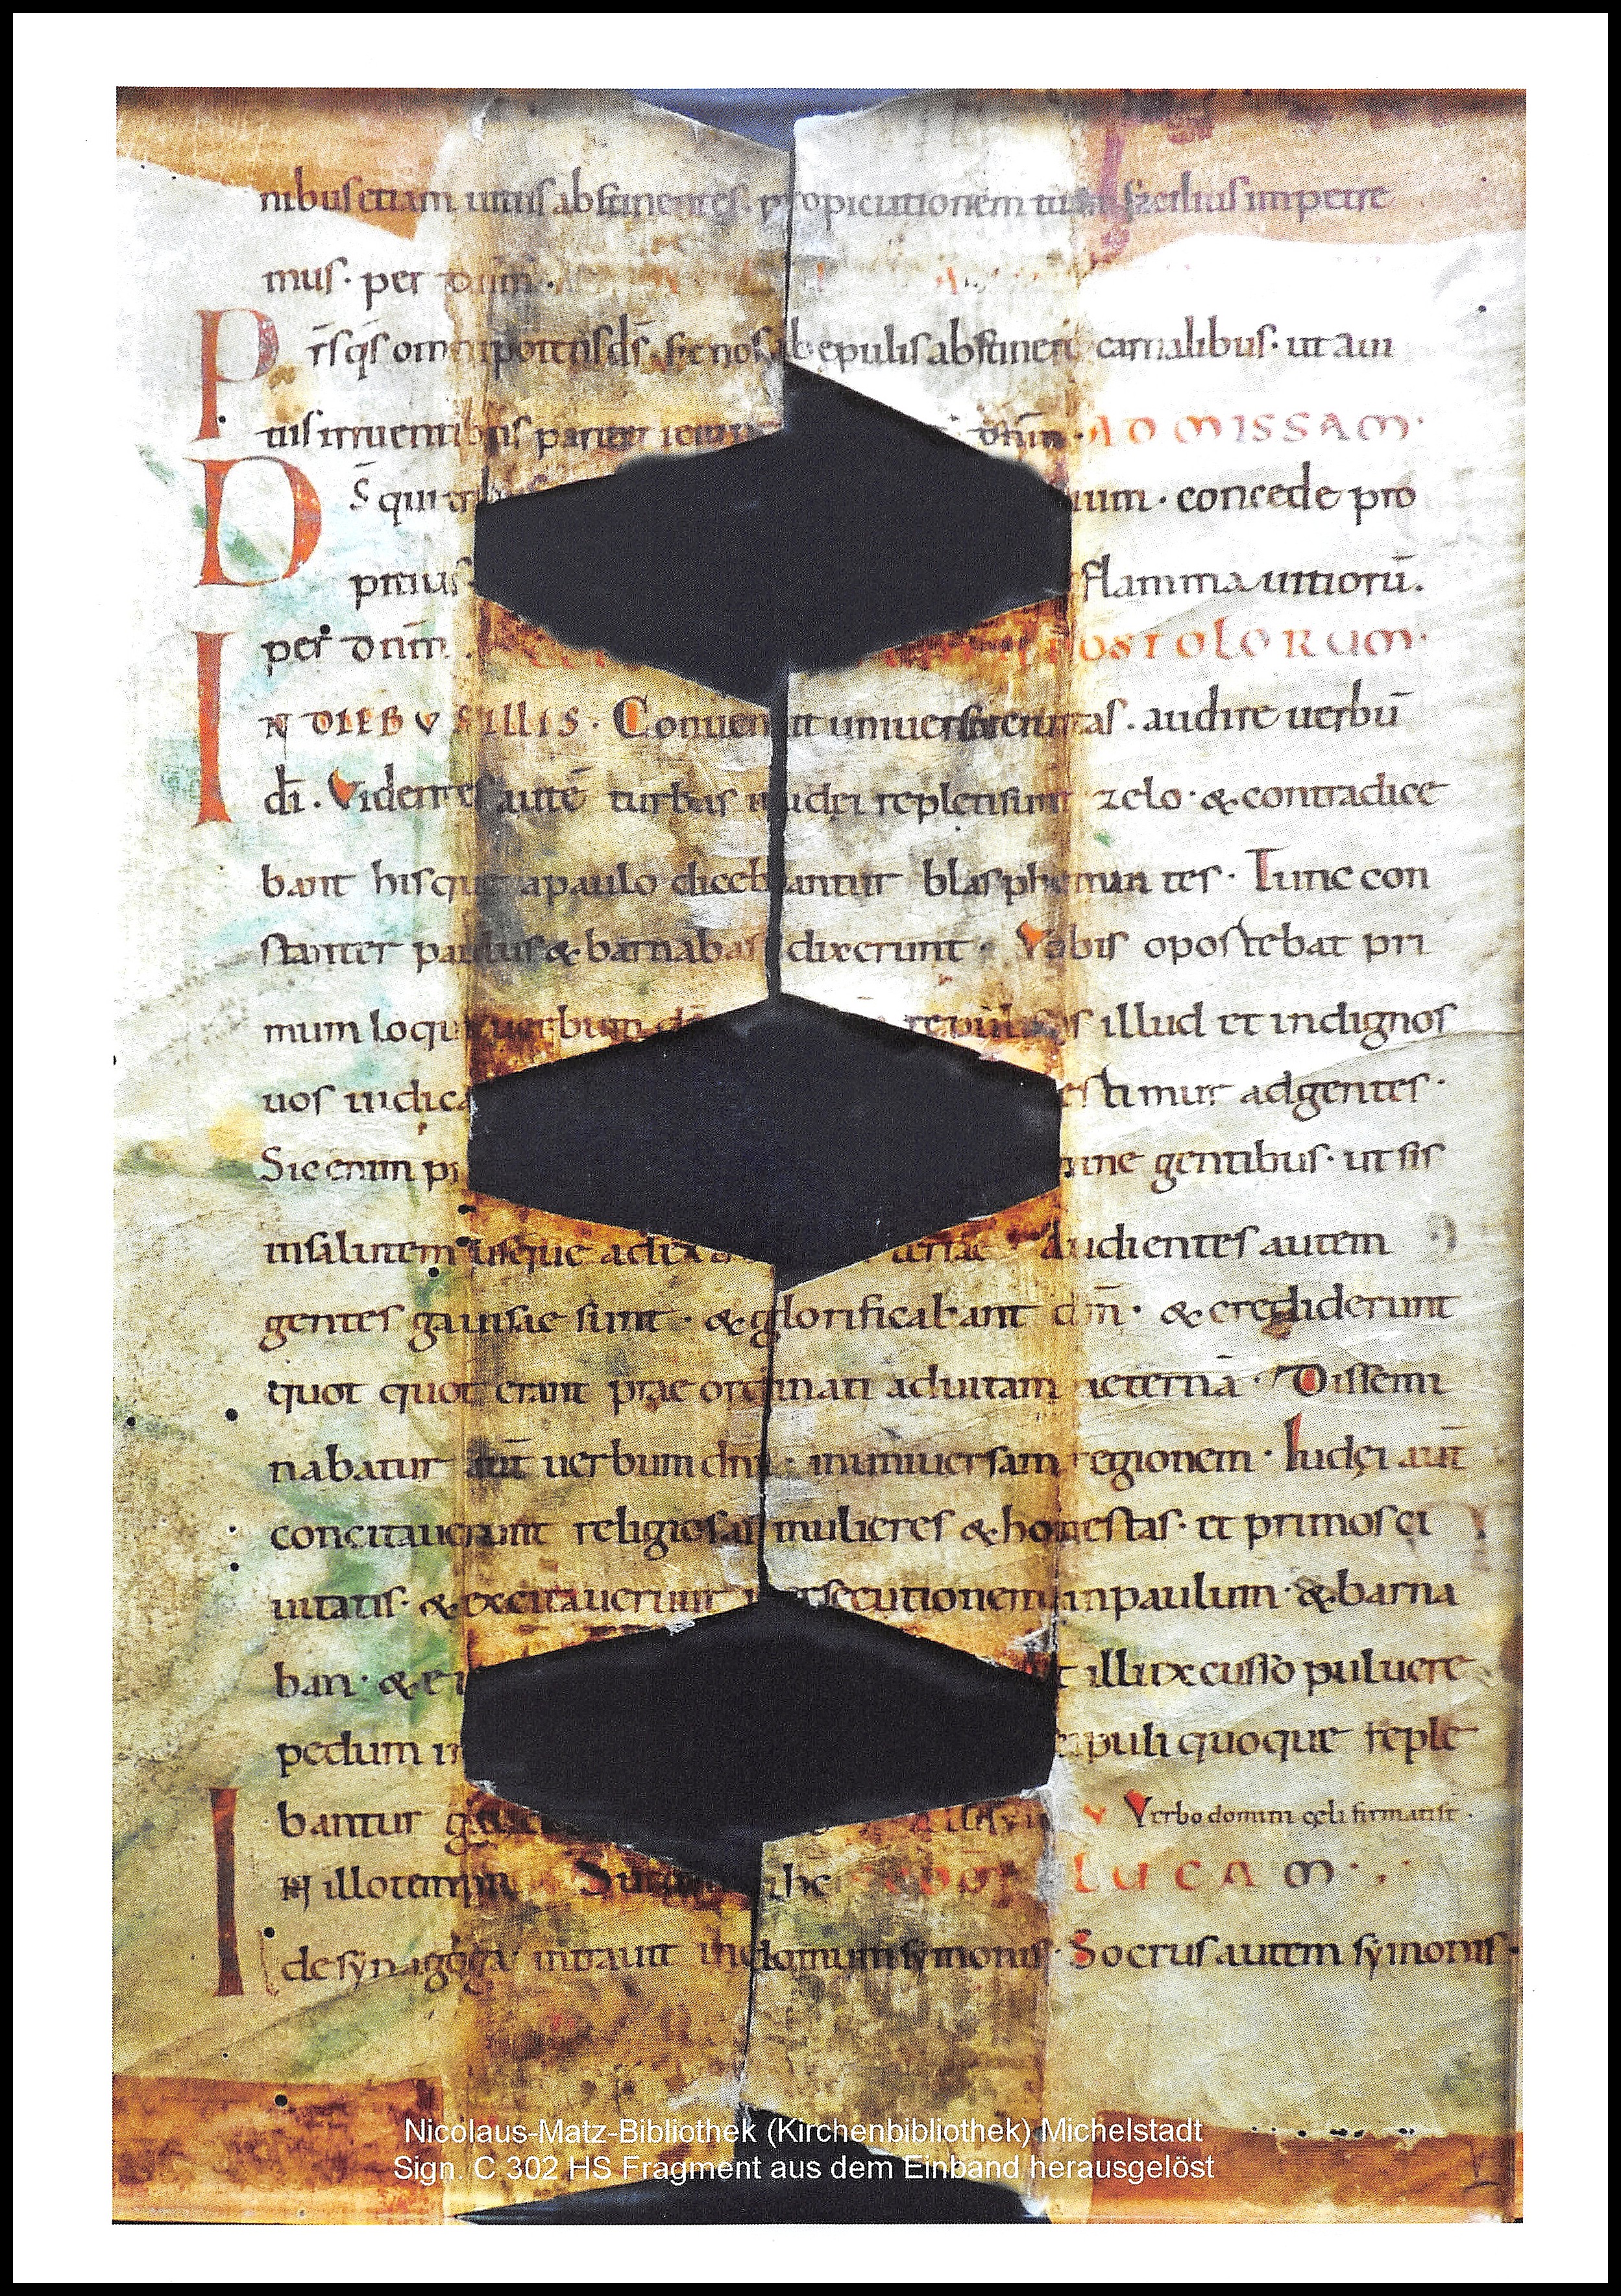 nibus etiam uitiis abstinentes. propiciationem tuā facilius impetre
mus. per dnm.
P rs qs omnipotens ds. sic nos ab epulis abstinere carnalibus. ut a ui
tiis irruentibus pariter ieiun dnm. AD MISSAM.
D S qui uium. concede pro
pitius flamma uitiorū.
per dnm. OSTOLORUM.
I N DIEBUS ILLIS. Conuenit uniuersa ciuitas. audire uerbū
dī. Videntes autē turbas iudęi repleti sunt zelo. & contradice
bant his que a paulo dicebantur blasphemantes. Tunc con
stanter paulus & barnabas dixerunt. Vobis oportebat pri
mum loqui uerbum dī repulistis illud et indignos
uos iudica estimur ad gentes.
Sic enim pr gentibus. ut sis
in salutem usque ad extre terrae. Audientes autem
gentes gauisae sunt. & glorificabant dnī. & crediderunt
quot quot erant prae ordinati ad uitam aeternā. Dissemi
nabatur aūt uerbum dni. in uniuersam regionem. Iudęi aūt
concitauerunt religiosas mulieres & honestas. et primos ci
uitatis. & excitauerunt persecutionem in paulum. & barna
ban. & ei illi excusso puluere
pedum in puli quoque reple
bantur V Verbo domini cęli firmati st.
I N illo tempr Sur ihc LUCAM.
de synagoga intrauit in domum symonis. Socrus autem symonis.
Nicolaus-Matz-Bibliothek (Kirchenbibliothek) Michelstadt
Sign. C 302 HS Fragment aus dem Einband herausgelöst